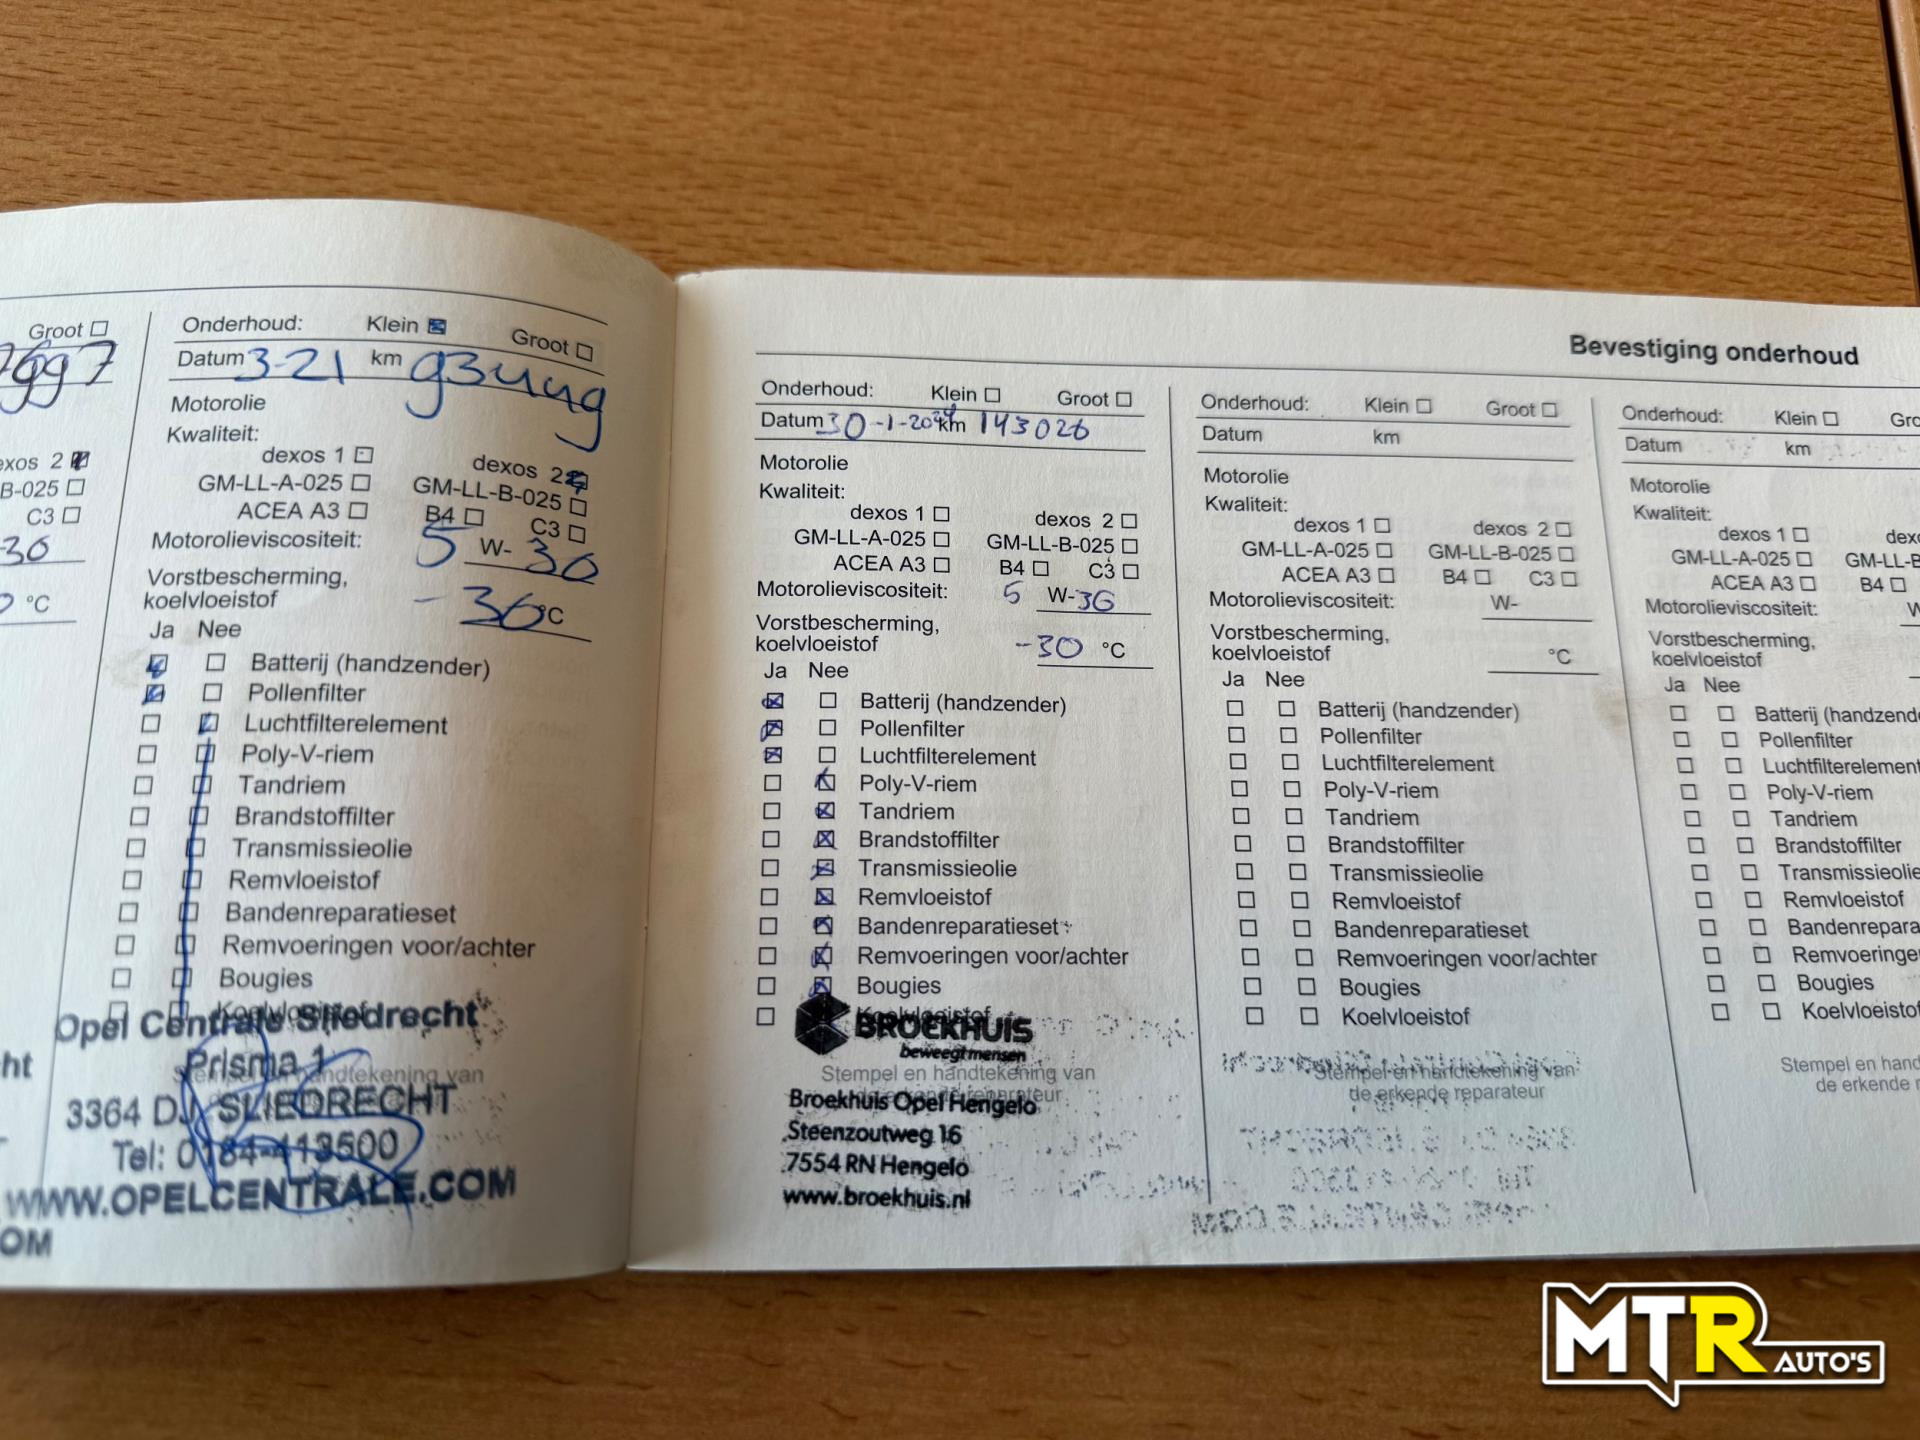 Groot
7997
dexos 2
B-025
C3
-30
°C
cht
OM
Onderhoud: Klein Groot
Datum 3-21 km 93449
Motorolie
Kwaliteit:
dexos 1 dexos 2
GM-LL-A-025 GM-LL-B-025
ACEA A3 B4 C3
Motorolieviscositeit: 5 W-30
Vorstbescherming,
koelvloeistof -36 °C
Ja Nee
Batterij (handzender)
Pollenfilter
Luchtfilterelement
Poly-V-riem
Tandriem
Brandstoffilter
Transmissieolie
Remvloeistof
Bandenreparatieset
Remvoeringen voor/achter
Bougies
Koelvloeistof
Opel Centrale Sliedrecht
Prisma 1
Stempel en handtekening van
3364 DJ SLIEDRECHT
Tel: 0184-413500
WWW.OPELCENTRALE.COM
Bevestiging onderhoud
Onderhoud: Klein Groot
Datum 30-1-2024 km 143026
Motorolie
Kwaliteit:
dexos 1 dexos 2
GM-LL-A-025 GM-LL-B-025
ACEA A3 B4 C3
Motorolieviscositeit: 5 W-30
Vorstbescherming,
koelvloeistof -30 °C
Ja Nee
Batterij (handzender)
Pollenfilter
Luchtfilterelement
Poly-V-riem
Tandriem
Brandstoffilter
Transmissieolie
Remvloeistof
Bandenreparatieset
Remvoeringen voor/achter
Bougies
Koelvloeistof
BROEKHUIS
beweegt mensen
Stempel en handtekening van
de erkende reparateur
Broekhuis Opel Hengelo
Steenzoutweg 16
7554 RN Hengelo
www.broekhuis.nl
Onderhoud: Klein Groot
Datum km
Motorolie
Kwaliteit:
dexos 1 dexos 2
GM-LL-A-025 GM-LL-B-025
ACEA A3 B4 C3
Motorolieviscositeit: W-
Vorstbescherming,
koelvloeistof °C
Ja Nee
Batterij (handzender)
Pollenfilter
Luchtfilterelement
Poly-V-riem
Tandriem
Brandstoffilter
Transmissieolie
Remvloeistof
Bandenreparatieset
Remvoeringen voor/achter
Bougies
Koelvloeistof
Stempel en handtekening van
de erkende reparateur
Onderhoud: Klein Gro
Datum km
Motorolie
Kwaliteit:
dexos 1 dexo
GM-LL-A-025 GM-LL-B
ACEA A3 B4
Motorolieviscositeit: W
Vorstbescherming,
koelvloeistof
Ja Nee
Batterij (handzende
Pollenfilter
Luchtfilterelement
Poly-V-riem
Tandriem
Brandstoffilter
Transmissieolie
Remvloeistof
Bandenrepara
Remvoeringe
Bougies
Koelvloeistof
Stempel en hand
de erkende r
MTR AUTO'S